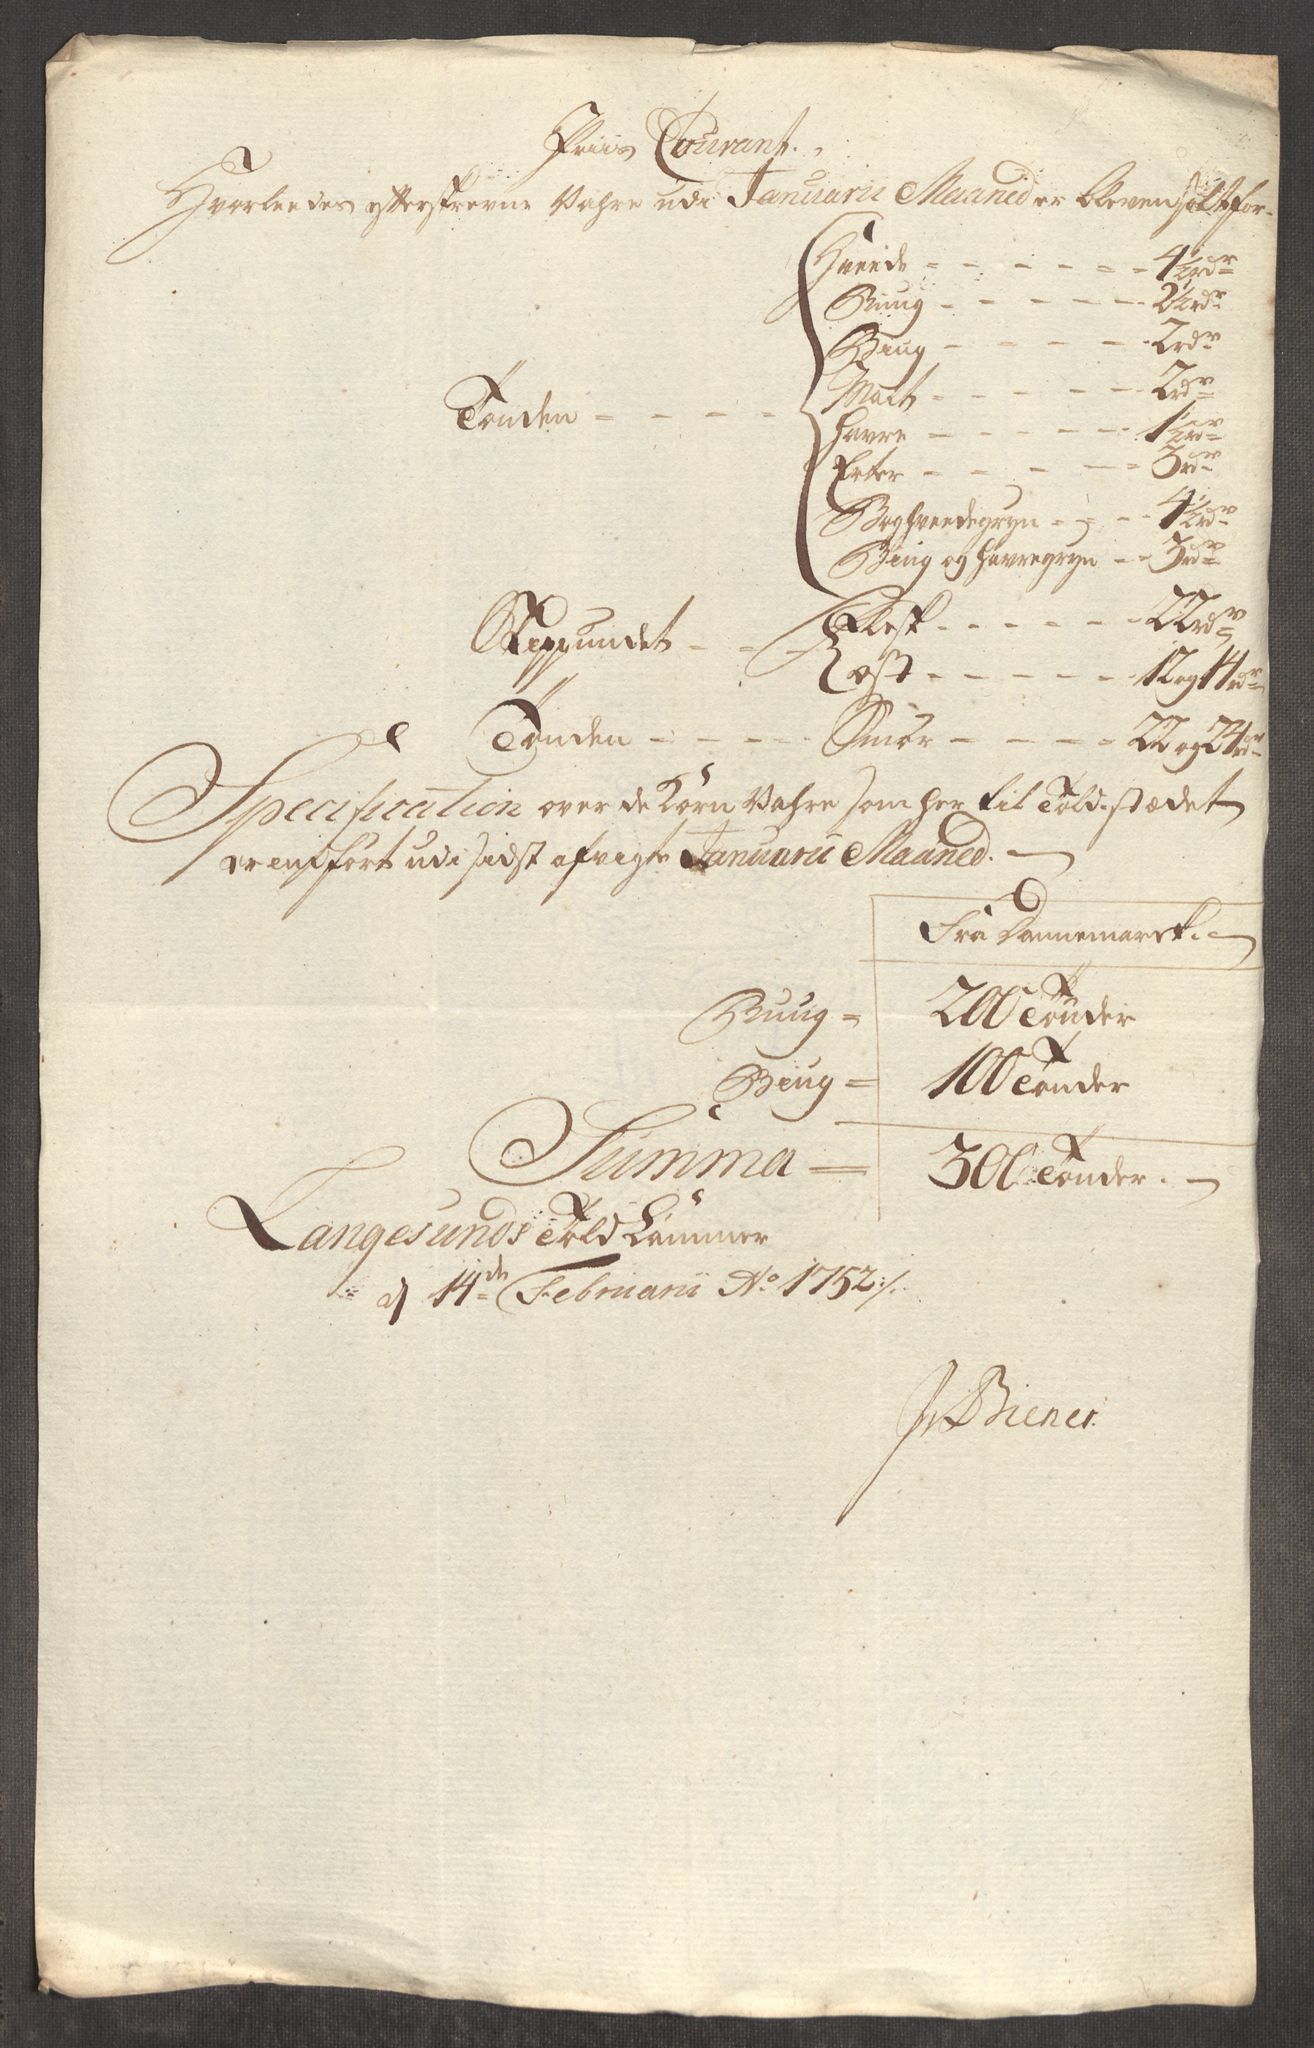 Priis Courant.
Hvorleedes efterskrevne Vahre udi Januarii Maaned er bleven solt for
Hveede - - - - - - 4½ rdr
Ruug - - - - - - 2½ rdr
Biug - - - - - 2 rdr
Malt - - - - - 2 rdr
Tønden - - - -
Havre - - - - - 1½ rdr
Erter - - - - - 3 rdr
Boghveedegryn - - - 4½ rdr
Biug og Havregryn - - 3 rdr
Skippundet - - - Flesk - - - - - - 22 rdr
Ost - - - - - - 12 og 14 rdr
Tønden - - - - - Smør - - - - - 22 og 24 rdr
Specification over de Korn Vahre som her til Toldstædet
er indført udi sidst afvigte Januarii Maaned.
Fra Dannemarck.
Ruug = 200 Tønder
Biug = 100 Tønder
Summa = 300 Tønder.
Langesunds Told Kammer
d 14de Februarii Ao 1752 ./.
Biener.